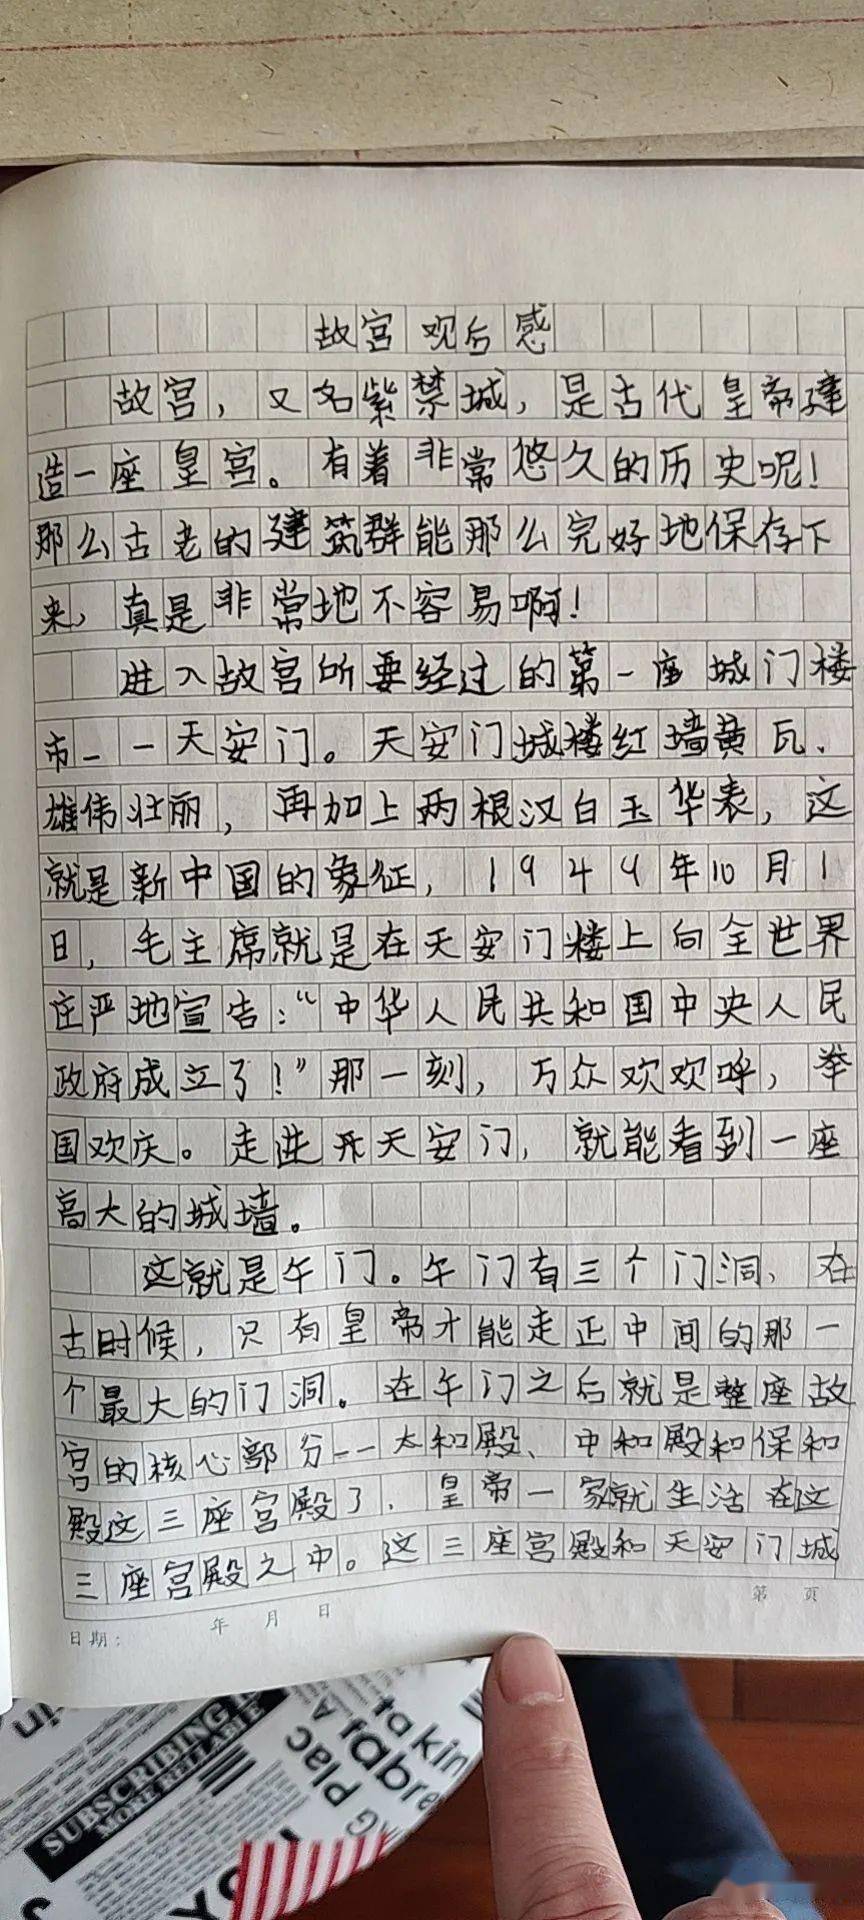 故宫观后感
故宫，又名紫禁城，是古代皇帝建
造一座皇宫。有着非常悠久的历史呢！
那么古老的建筑群能那么完好地保存下
来，真是非常地不容易啊！
进入故宫所要经过的第一座城门楼
市——天安门。天安门城楼红墙黄瓦、
雄伟壮丽，再加上两根汉白玉华表，这
就是新中国的象征，1949年10月1
日，毛主席就是在天安门楼上向全世界
庄严地宣告：“中华人民共和国中央人民
政府成立了！”那一刻，万众欢欢呼，举
国欢庆。走进天安门，就能看到一座
高大的城墙。
这就是午门。午门有三个门洞，在
古时候，只有皇帝才能走正中间的那一
个最大的门洞。在午门之后就是整座故
宫的核心部分——太和殿、中和殿和保和
殿这三座宫殿了，皇帝一家就生活在这
三座宫殿之中。这三座宫殿和天安门城
日期： 年 月 日 第 页
SUBSCRIBING
MORE RELIABLE
in
Plac
A
ta
kin
fabre